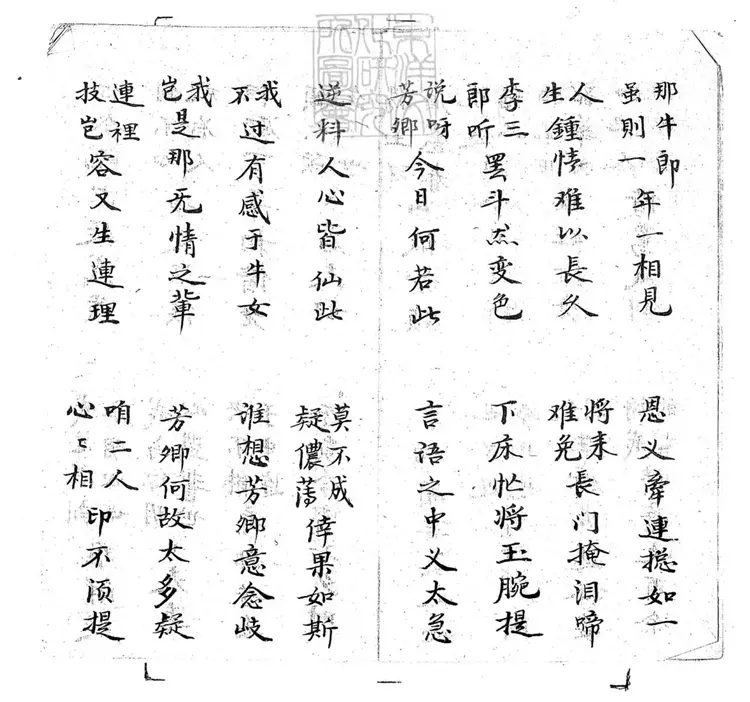 那牛郎虽則一年一相見
恩义牵連搃如一
人生鍾情难以長久
将来难免長门掩泪啼
李三郎听罢斗然变色
下床忙将玉腕提
说呀芳卿今日何若此
言语之中义太急
逆料人心皆仙此
莫不成疑儂薄倖果如斯
我不过有感于牛女
谁想芳卿意念歧
我岂是那无情之軰
芳卿何故太多疑
連裡技岂容又生連理
咱二人心〻相印不须提